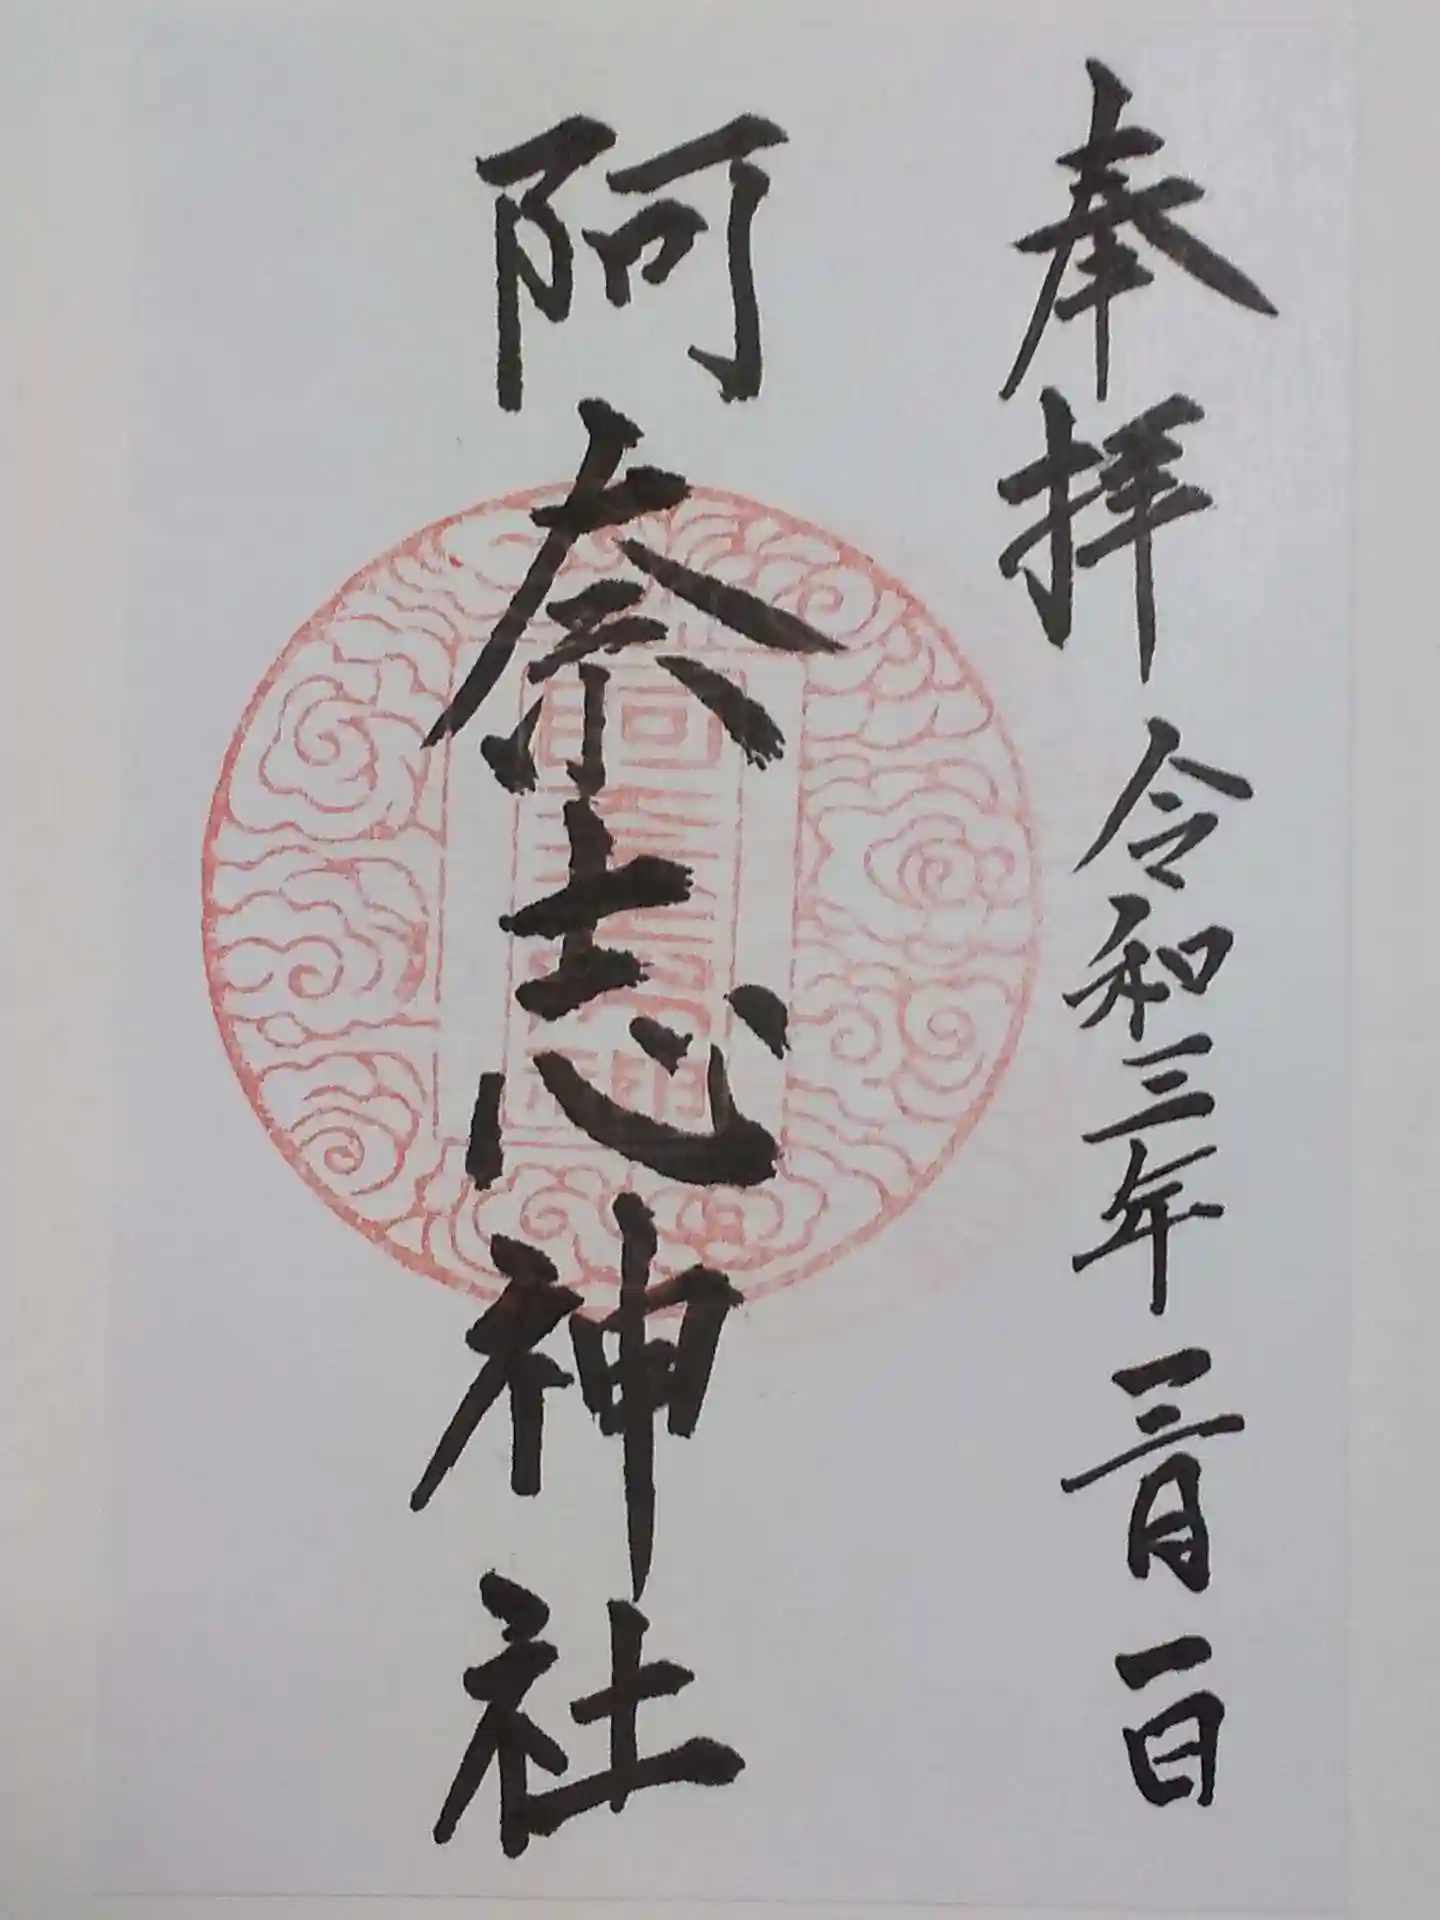 奉拝 令和三年 三月 一日
阿奈志神社